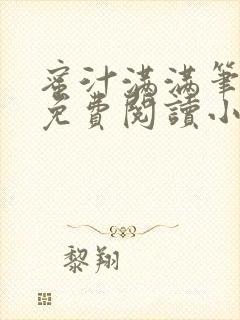 蜜汁满满筆
免費閱讀小
黎翔